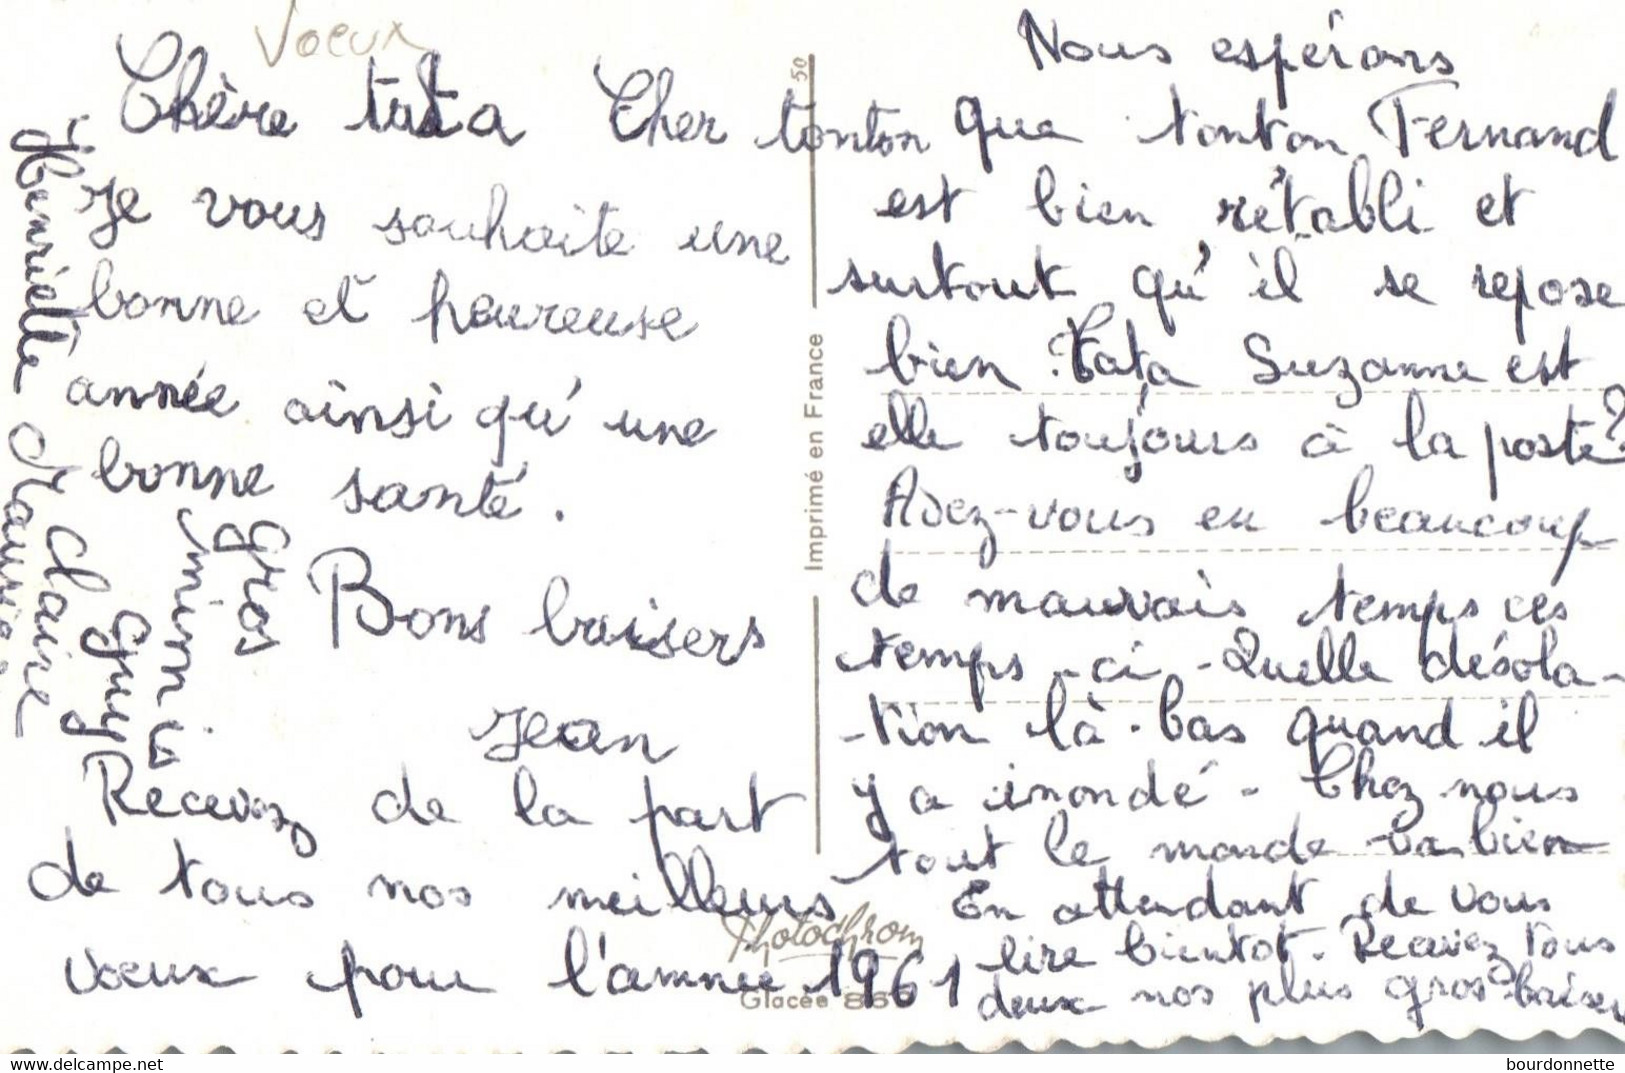 Voeux
Chère tata Cher tonton
Je vous souhaite une
bonne et heureuse
année ainsi qu'une
bonne santé.
Bons baisers
Jean
Recevez de la part
de tous nos meilleurs
voeux pour l'année 1961
Nous espérons
que tonton Fernand
est bien rétabli et
surtout qu'il se repose
bien. Tata Suzanne est
elle toujours à la poste?
Avez-vous eu beaucoup
de mauvais temps ces
temps-ci - Quelle désola-
-tion là-bas quand il
y a inondé - Chez nous
tout le monde va bien
En attendant de vous
lire bientot. Recevez tous
deux nos plus gros baisers
Henriette Maurice
Claire
Guy
mimie
gros
50
Imprimé en France
Photochrom
Glacée 86
bourdonnette